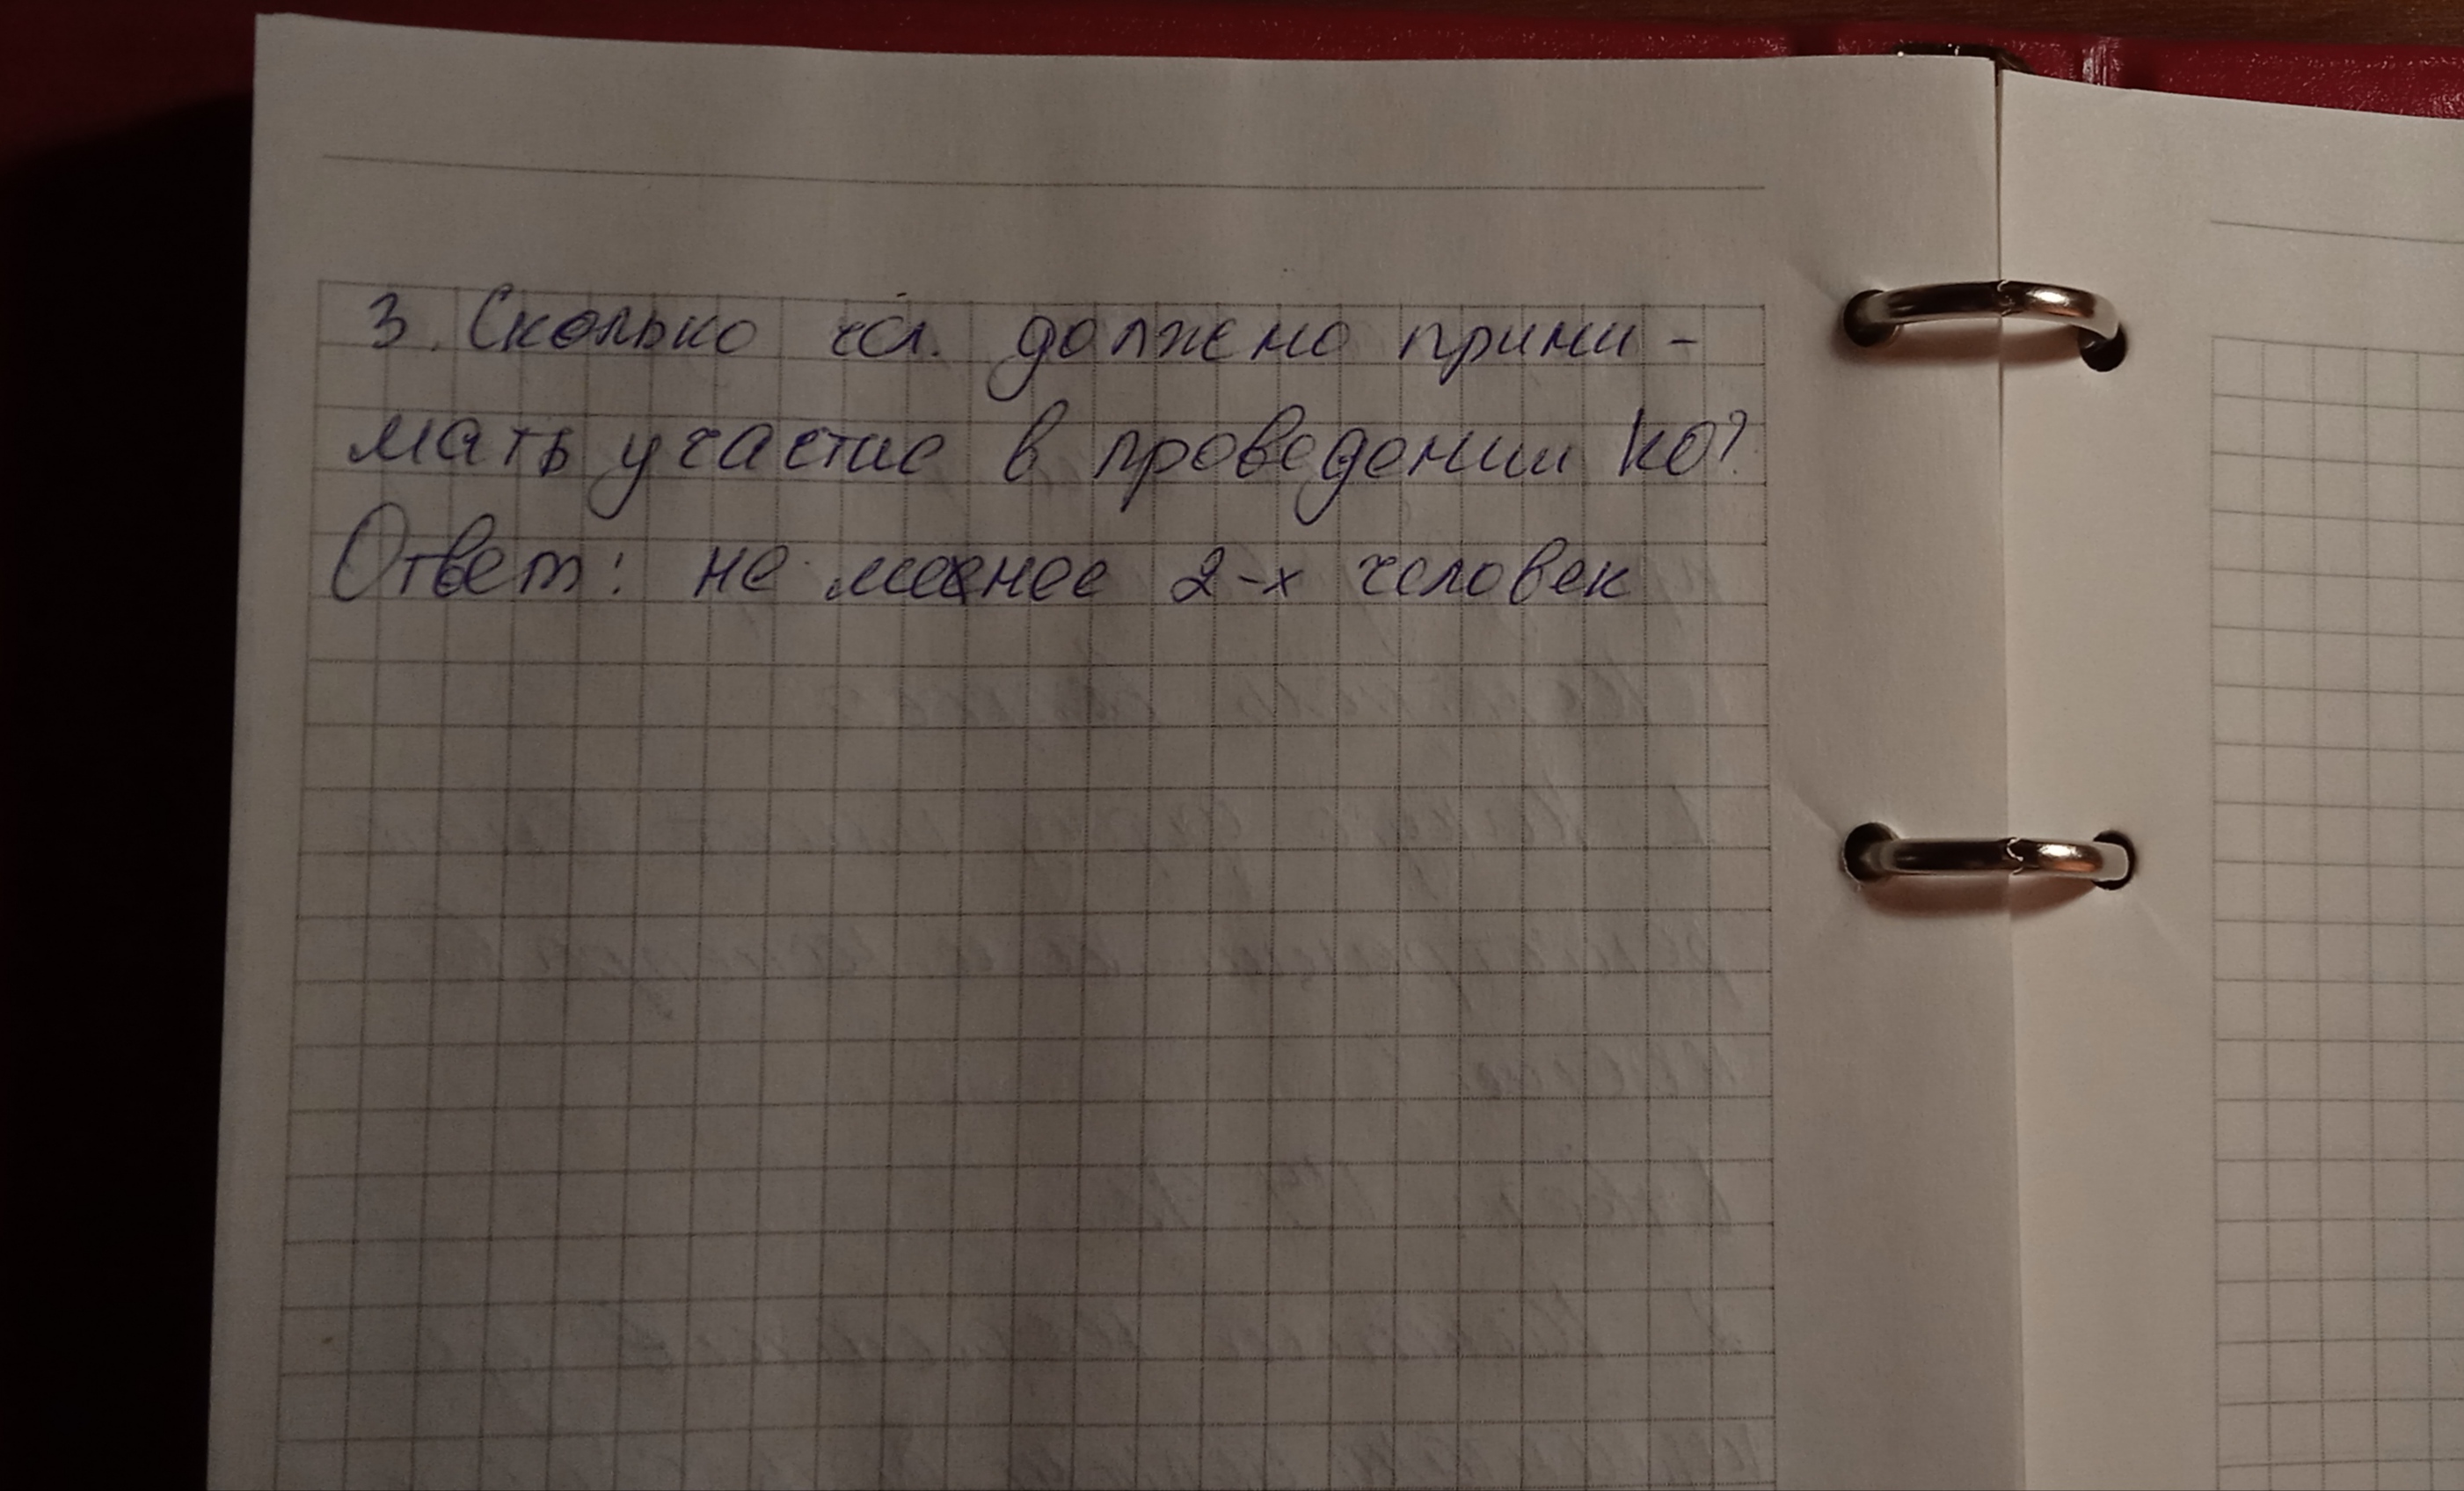 3. Сколько чел. должно прини-
мать участие в проведении КО?
Ответ: не менее 2-х человек